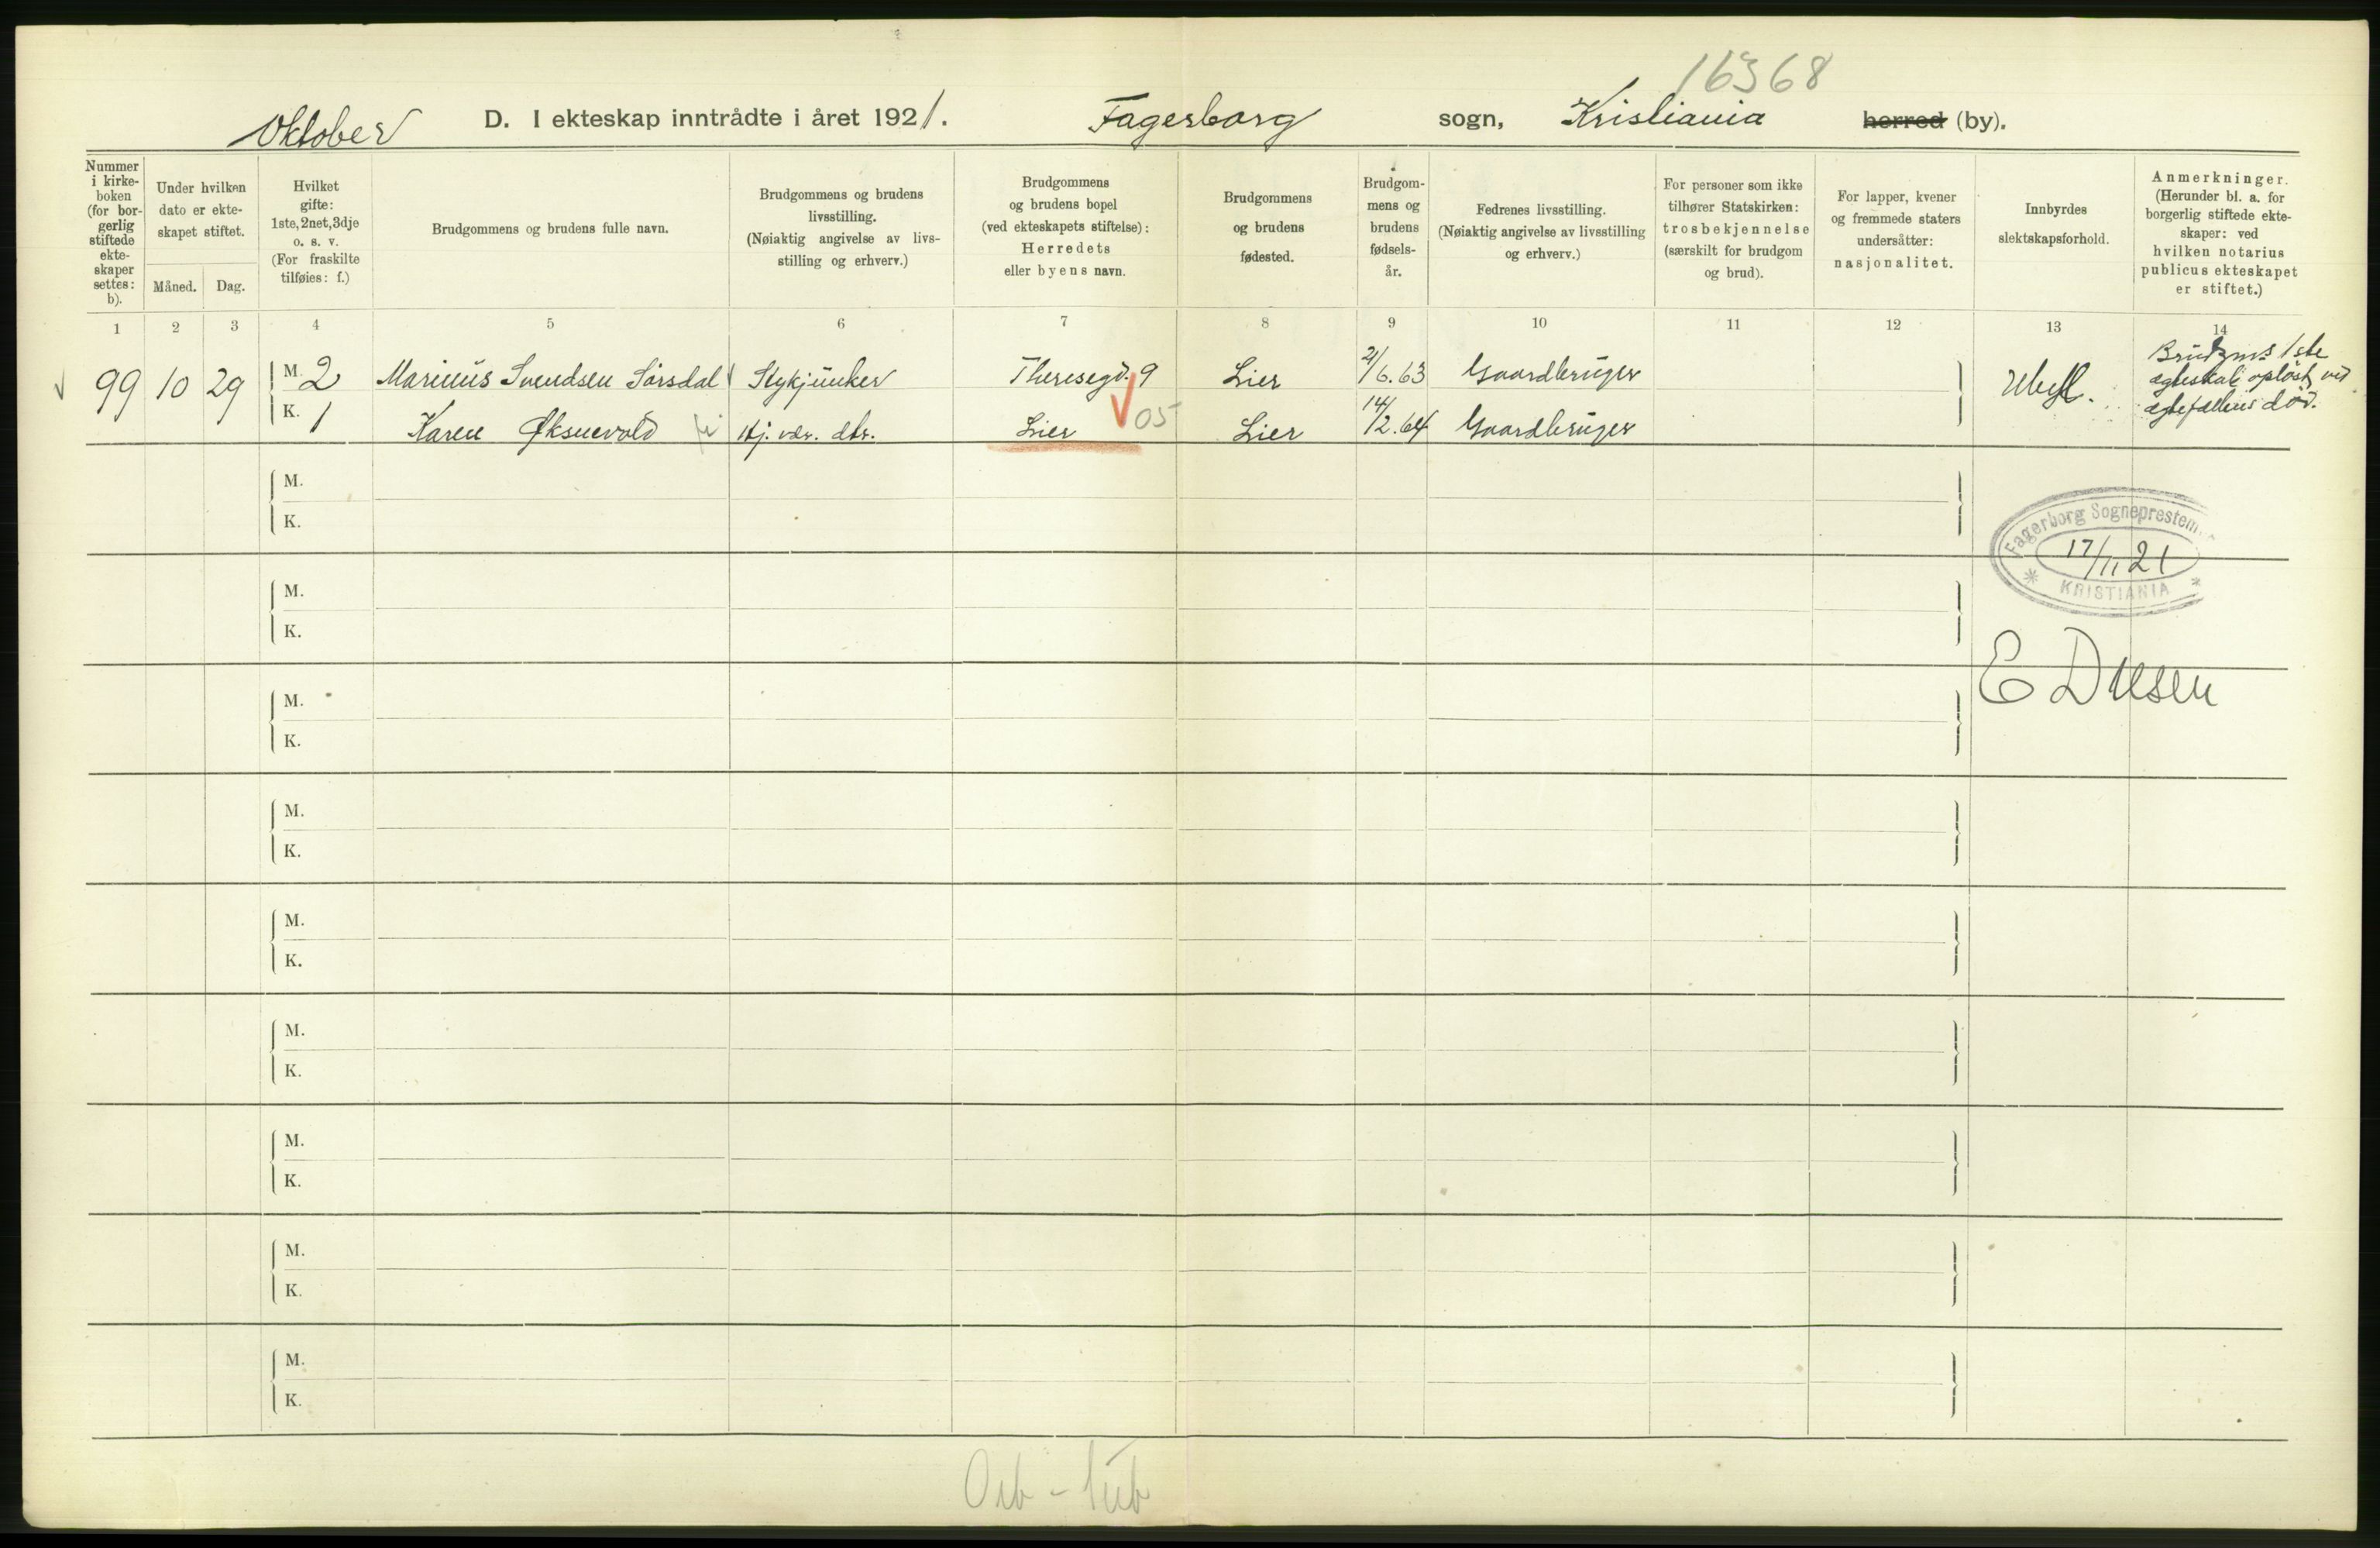 16368
Oktober D. I ekteskap inntrådte i året 1921. Fagerborg sogn, Kristiania herred (by).
Nummer
i kirke-
boken
(for bor-
gerlig
stiftede
ekte-
skaper
settes:
b).
Under hvilken
dato er ekte-
skapet stiftet.
Måned. Dag.
Hvilket
gifte:
1ste, 2net, 3dje
o. s. v.
(For fraskilte
tilføies: f.)
Brudgommens og brudens fulle navn.
Brudgommens og brudens
livsstilling.
(Nøiaktig angivelse av livs-
stilling og erhverv.)
Brudgommens
og brudens bopel
(ved ekteskapets stiftelse):
Herredets
eller byens navn.
Brudgommens
og brudens
fødested.
Brudgom-
mens og
brudens
fødsels-
år.
Fedrenes livsstilling.
(Nøiaktig angivelse av livsstilling
og erhverv.)
For personer som ikke
tilhører Statskirken:
trosbekjennelse
(særskilt for brudgom
og brud).
For lapper, kvener
og fremmede staters
undersåtter:
nasjonalitet.
Innbyrdes
slektskapsforhold.
Anmerkninger.
(Herunder bl. a. for
borgerlig stiftede ekte-
skaper: ved
hvilken notarius
publicus ekteskapet
er stiftet.)
1 2 3 4 5 6 7 8 9 10 11 12 13 14
99 10 29 M. 2 Marinus Svendsen Sørsdal Stykjunker Theresegd. 9 Lier 21/6.63 Gaardbruger Ubesl.
K. 1 Karen Øksnevold Hj. vær. dtr. Lier 05 Lier 14/2.64 Gaardbruger
Brudgms 1ste
ægteskab opløst ved
ægtefællens død.
M.
K.
Fagerborg Sogneprestem
17/11 21
KRISTIANIA
M.
K.
E Duesen
M.
K.
M.
K.
M.
K.
M.
K.
M.
K.
M.
K.
M.
K.